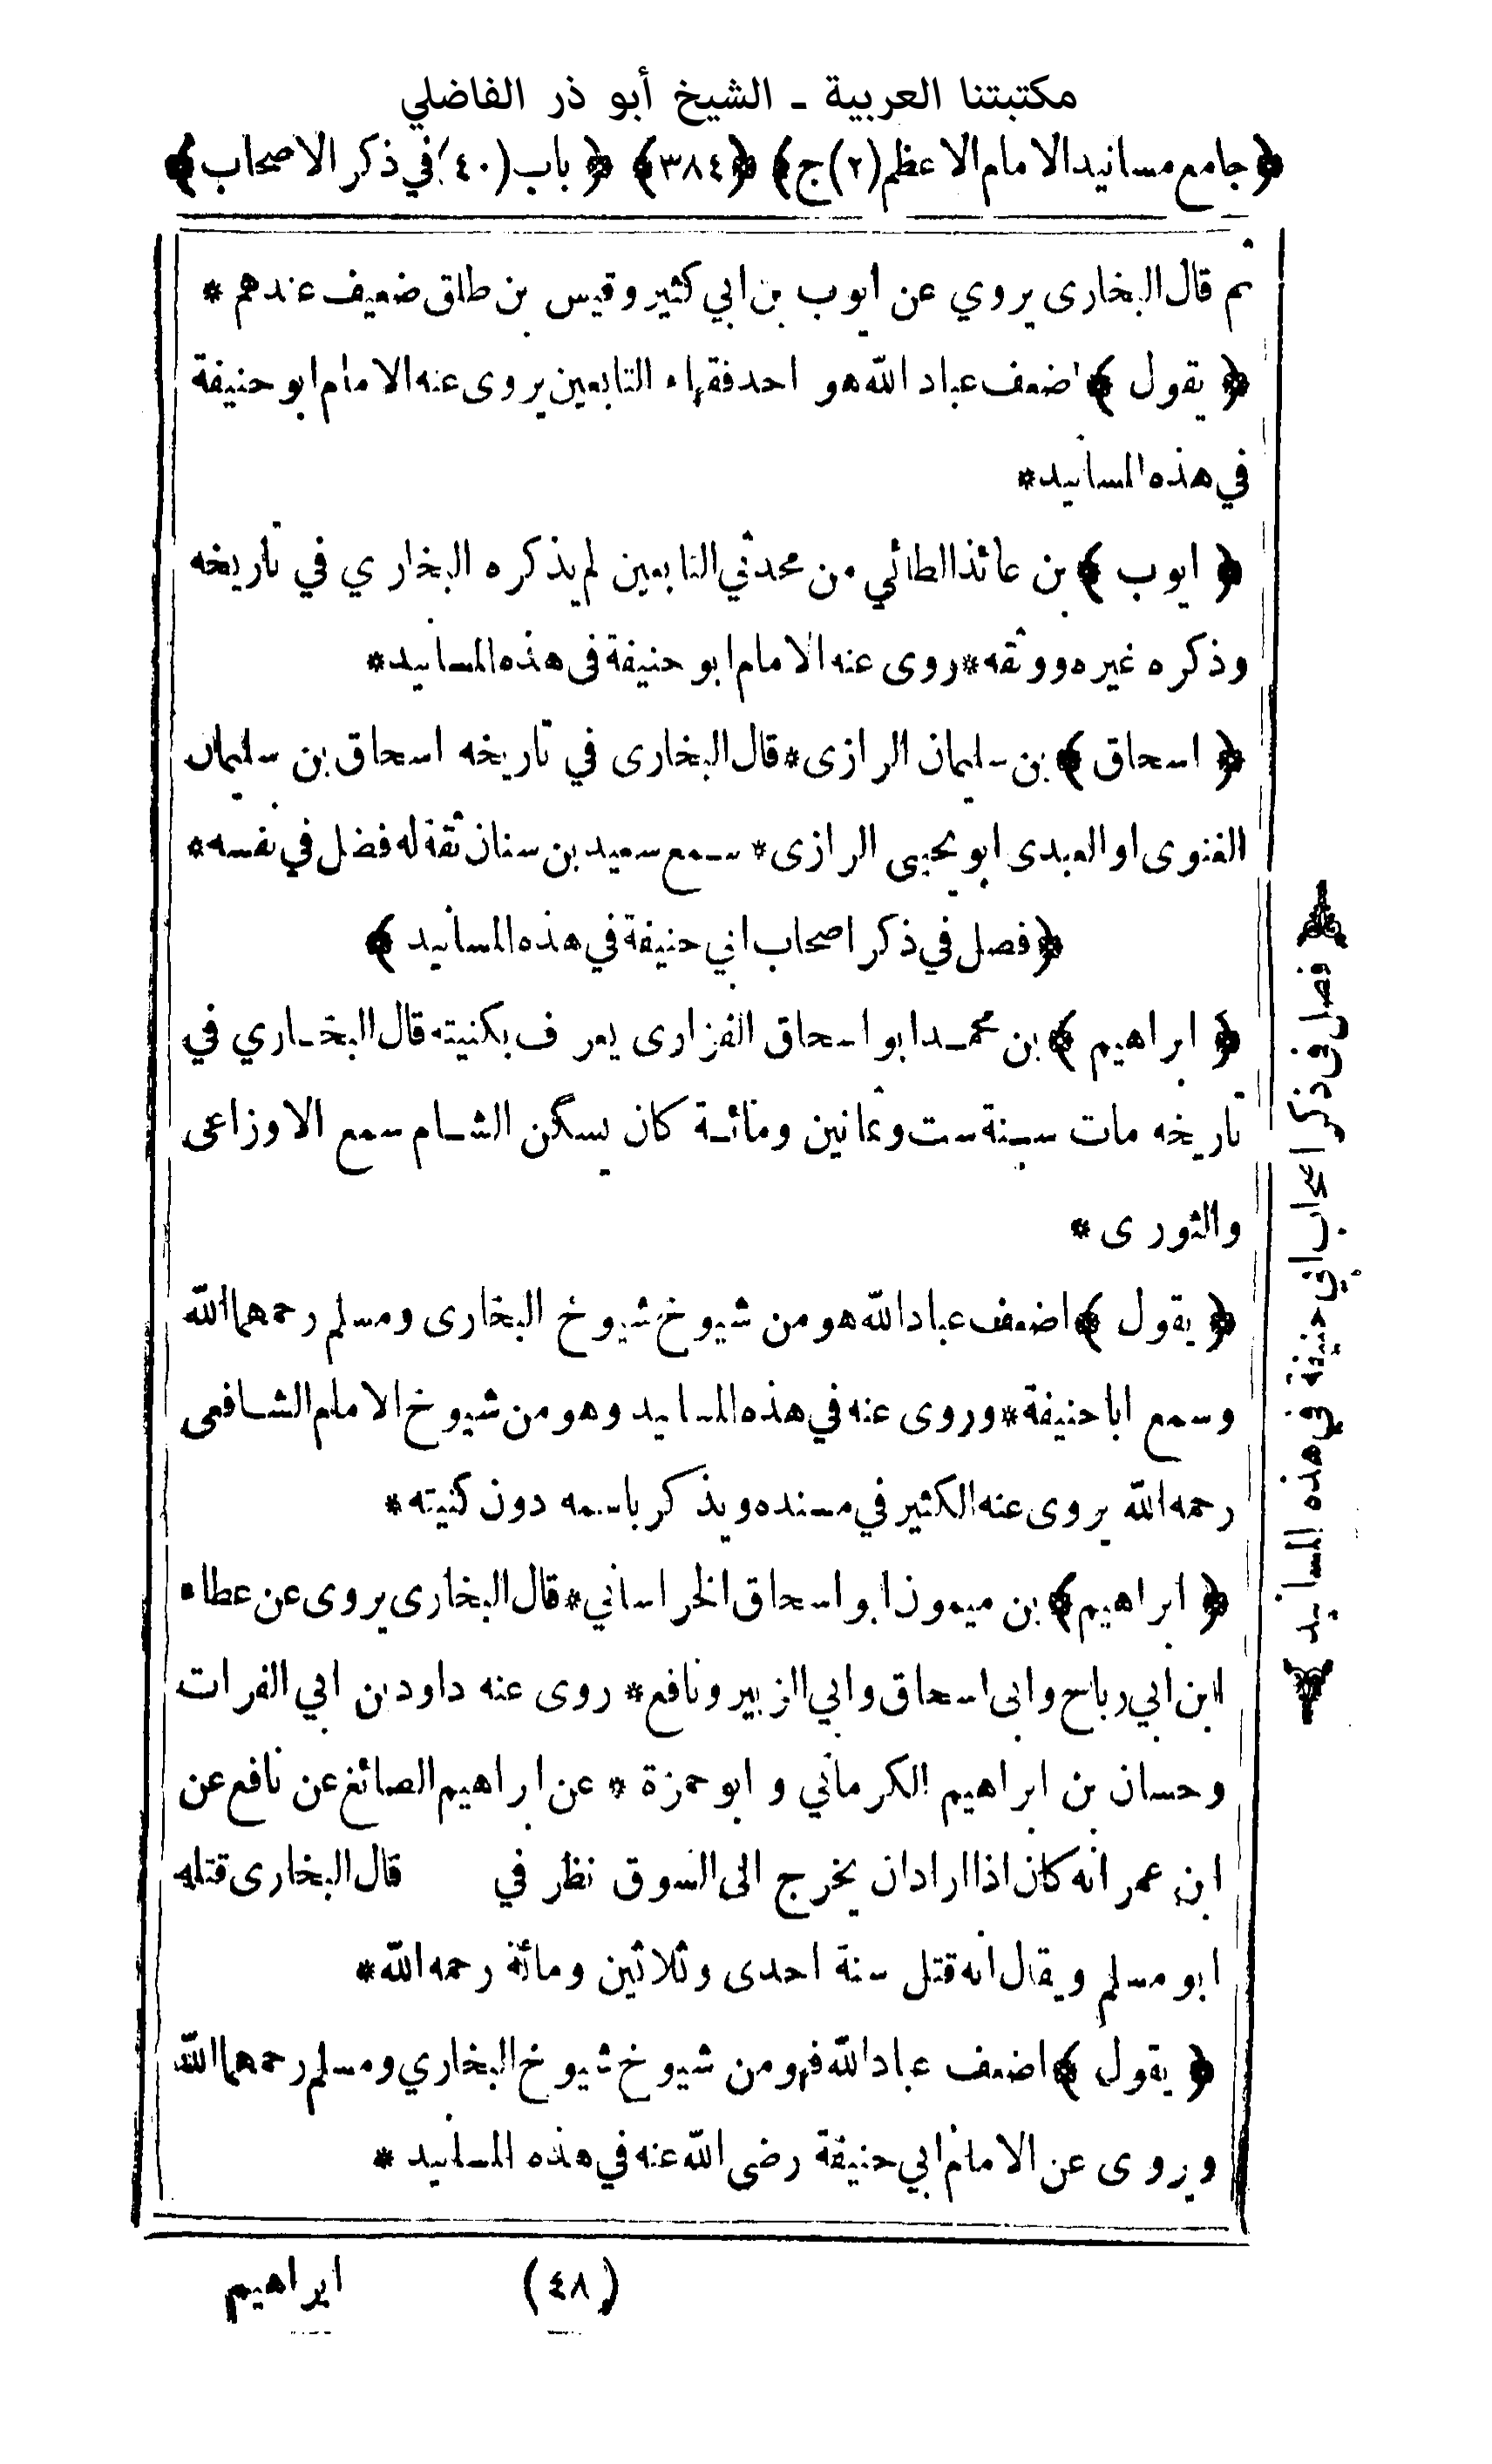 مكتبتنا العربية ـ الشيخ أبو ذر الفاضلي
﴿جامع مسانيد الامام الاعظم (٢) ج﴾ ﴿٣٨٤﴾ ﴿باب (٤٠) في ذكر الاصحاب﴾
ثم قال البخارى يروي عن ايوب بن ابي كثير وقيس بن طلق ضعيف عندهم *
﴿ يقول ﴾ اضعف عباد الله هو احد فقهاء التابعين يروى عنه الامام ابو حنيفة
في هذه المسانيد *
﴿ ايوب ﴾ بن عائذ الطائي من محدثي التابعين لم يذكره البخاري في تاريخه
وذكره غيره ووثقه * روى عنه الامام ابو حنيفة فى هذه المسانيد *
﴿ اسحاق ﴾ بن سليمان الرازى * قال البخارى في تاريخه اسحاق بن سليمان
الغنوى او العبدى ابو يحيى الرازى * سمع سعيد بن سنان ثقة له فضل في نفسه *
﴿ فصل في ذكر اصحاب ابي حنيفة في هذه المسانيد ﴾
﴿ ابراهيم ﴾ بن محمد ابو اسحاق الفزارى يعرف بكنيته قال البخاري في
تاريخه مات سنة ست وثمانين ومائة كان يسكن الشام سمع الاوزاعى
والثورى *
﴿ يقول ﴾ اضعف عباد الله هو من شيوخ شيوخ البخارى ومسلم رحمهما الله
وسمع ابا حنيفة * وروى عنه في هذه المسانيد وهو من شيوخ الامام الشافعى
رحمه الله يروى عنه الكثير في مسنده ويذكر باسمه دون كنيته *
﴿ ابراهيم ﴾ بن ميمون ابو اسحاق الخراساني * قال البخارى يروى عن عطاء
ابن ابي رباح وابى اسحاق وابي الزبير ونافع * روى عنه داود بن ابي الفرات
وحسان بن ابراهيم الكرماني و ابو حمزة * عن ابراهيم الصائغ عن نافع عن
ابن عمر انه كان اذا اراد ان يخرج الى السوق نظر في قال البخارى قتله
ابو مسلم ويقال انه قتل سنة احدى وثلاثين ومائة رحمه الله *
﴿ يقول ﴾ اضعف عباد الله فهو من شيوخ شيوخ البخاري ومسلم رحمهما الله
ويروى عن الامام ابي حنيفة رضى الله عنه في هذه المسانيد *
﴿ فصل في ذكر اصحاب ابي حنيفة في هذه المسانيد ﴾
(٤٨) ابراهيم